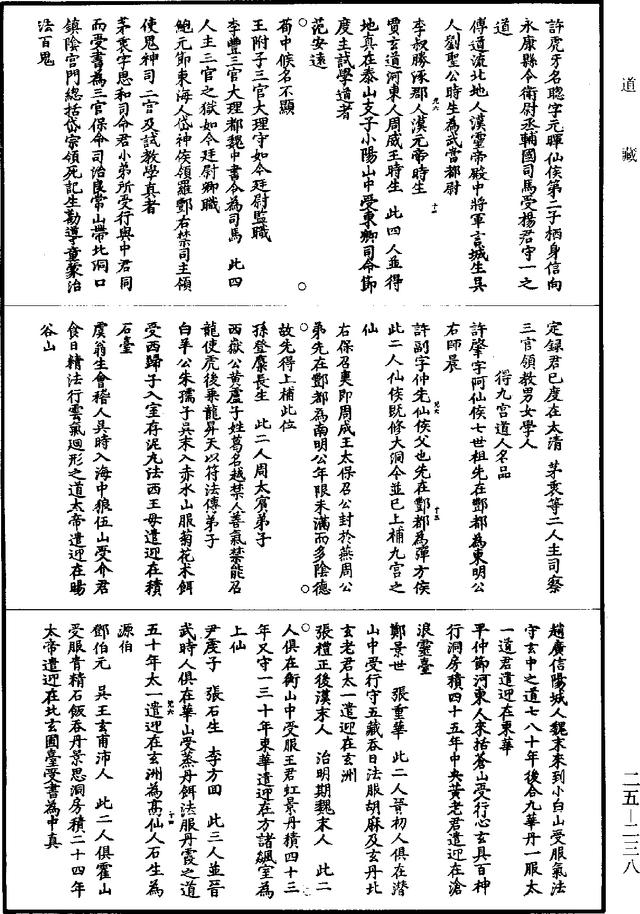 道藏
許虎牙名聰字元暉仙侯第二子栖身信向
永康縣令衛尉丞輔國司馬受楊君守一之
道
傅道流北地人漢靈帝殿中將軍言城生具
人劉聖公時生為武當都尉
李叔勝涿郡人漢元帝時生
賈玄道河東人周威王時生 此四人並得
地真在泰山支子小陽山中受東卿司命節
度主試學道者
范安遠
荀中候名不顯
王附子三官大理守如今廷尉監職
李豐三官大理都魏中書令為司馬 此四
人主三官之獄如今廷尉卿職
鮑元節東海人岱神侯領羅酆右禁司主領
使鬼神司二宫及試教學真者
茅衷字思和司命君小弟所受行與中君同
而受書為三官保命司治良常山帶北洞口
鎮陰宫門總括岱宗領死記生勤導童蒙治
法百鬼
定録君已度在太清 茅衷等二人主司察
三官領教男女學人
得九宫道人名品
許肇字阿仙侯七世祖先在酆都為東明公
右師晨
許副字仲先仙侯父也先在酆都為彈方侯
此二人仙侯既修大洞今並已上補九宫之
仙
右保召奭即周成王太保召公封於燕周公
弟先在酆都為南明公年限未滿而多陰德
故先得上補此位
孫登麋長生 此二人周太賓弟子
西嶽公黄盧子姓葛名越禁人善氣禁能召
龍使虎後乗龍昇天以符法傳弟子
白羊公朱孺子吳末入赤水山服菊花术餌
受西歸子入室存泥丸法西王母遣迎在積
石臺
虞翁生會稽人吳時入海中狼伍山受介君
食日精法行雲氣迴形之道太帝遣迎在暘
谷山
趙廣信陽城人魏末來到小白山受服氣法
守玄中之道七八十年後合九華丹一服太
一道君遣迎在東華
平仲節河東人來括蒼山受行心玄具百神
行洞房積四十五年中央黄老君遣迎在滄
浪靈臺
鄭景世 張重華 此二人晉初人俱在潜
山中受行守五藏吞日法服胡麻及玄丹北
玄老君太一遣迎在玄洲
張禮正後漢末人 治明期魏末人 此二
人俱在衡山中受服王君虹景丹積四十三
年又守一三十年東華遣迎在方諸飆室為
上仙
尹虔子 張石生 李方回 此三人並晉
武時人俱在華山受蒸丹餌法服丹霞之道
五十年太一遣迎在玄洲為高仙人石生為
源伯
鄧伯元 吳王玄甫沛人 此二人俱霍山
受服青精石飯吞丹景思洞房積二十四年
太帝遣迎在北玄圃臺受書為中真
二五—二三八